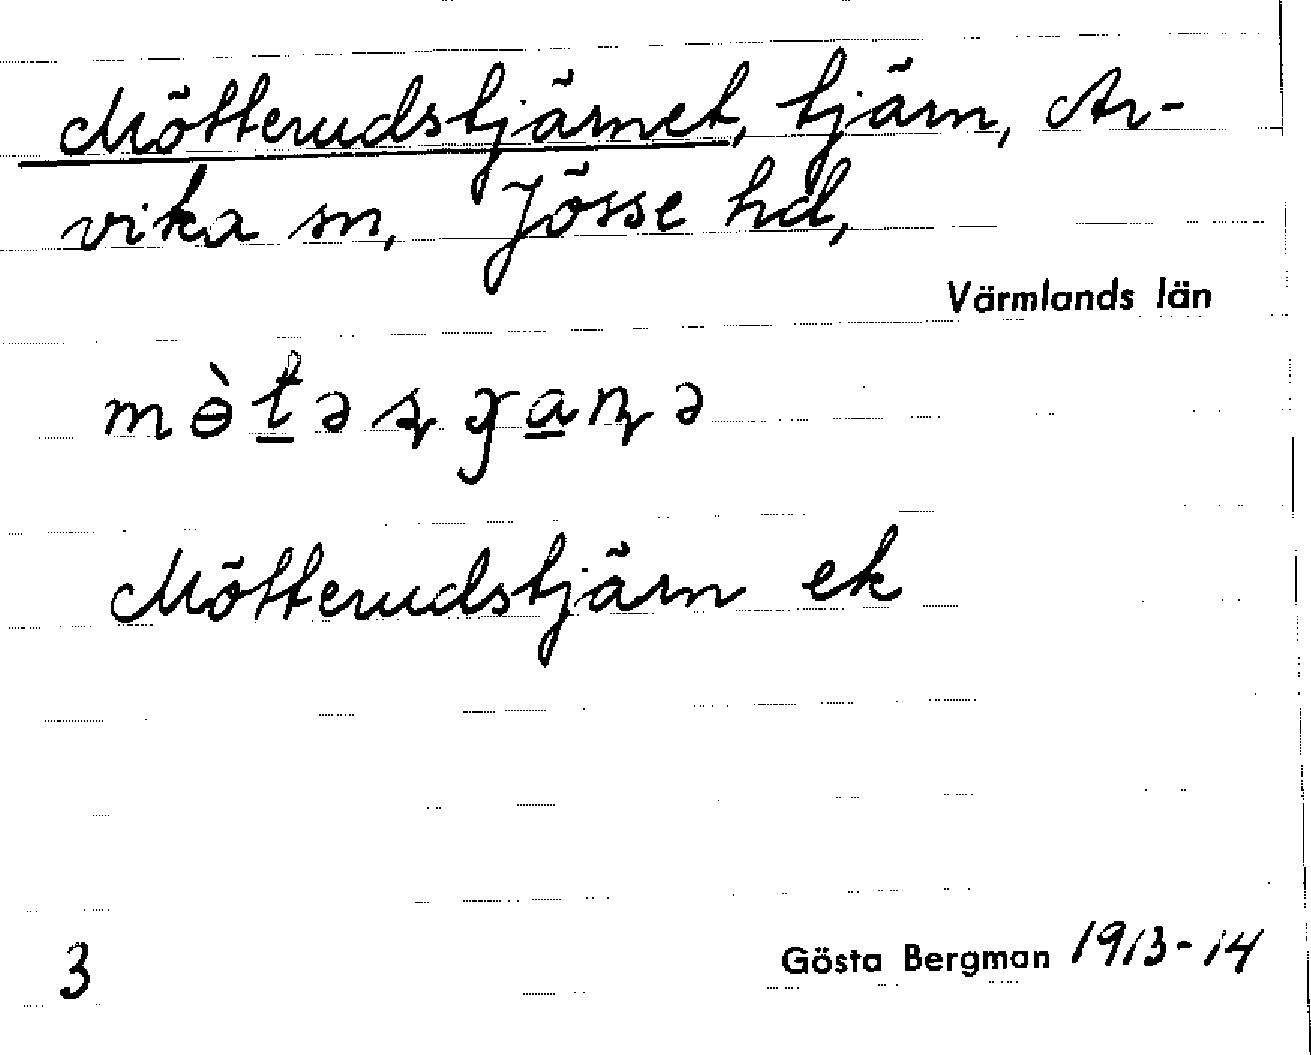 Mötterudstjärnet, tjärn, Ar-
vika sn, Jösse hd,
Värmlands län
mɵ̀t̲əʂɣa̲ɳə
Mötterudstjärn ek
3
Gösta Bergman 1913-14